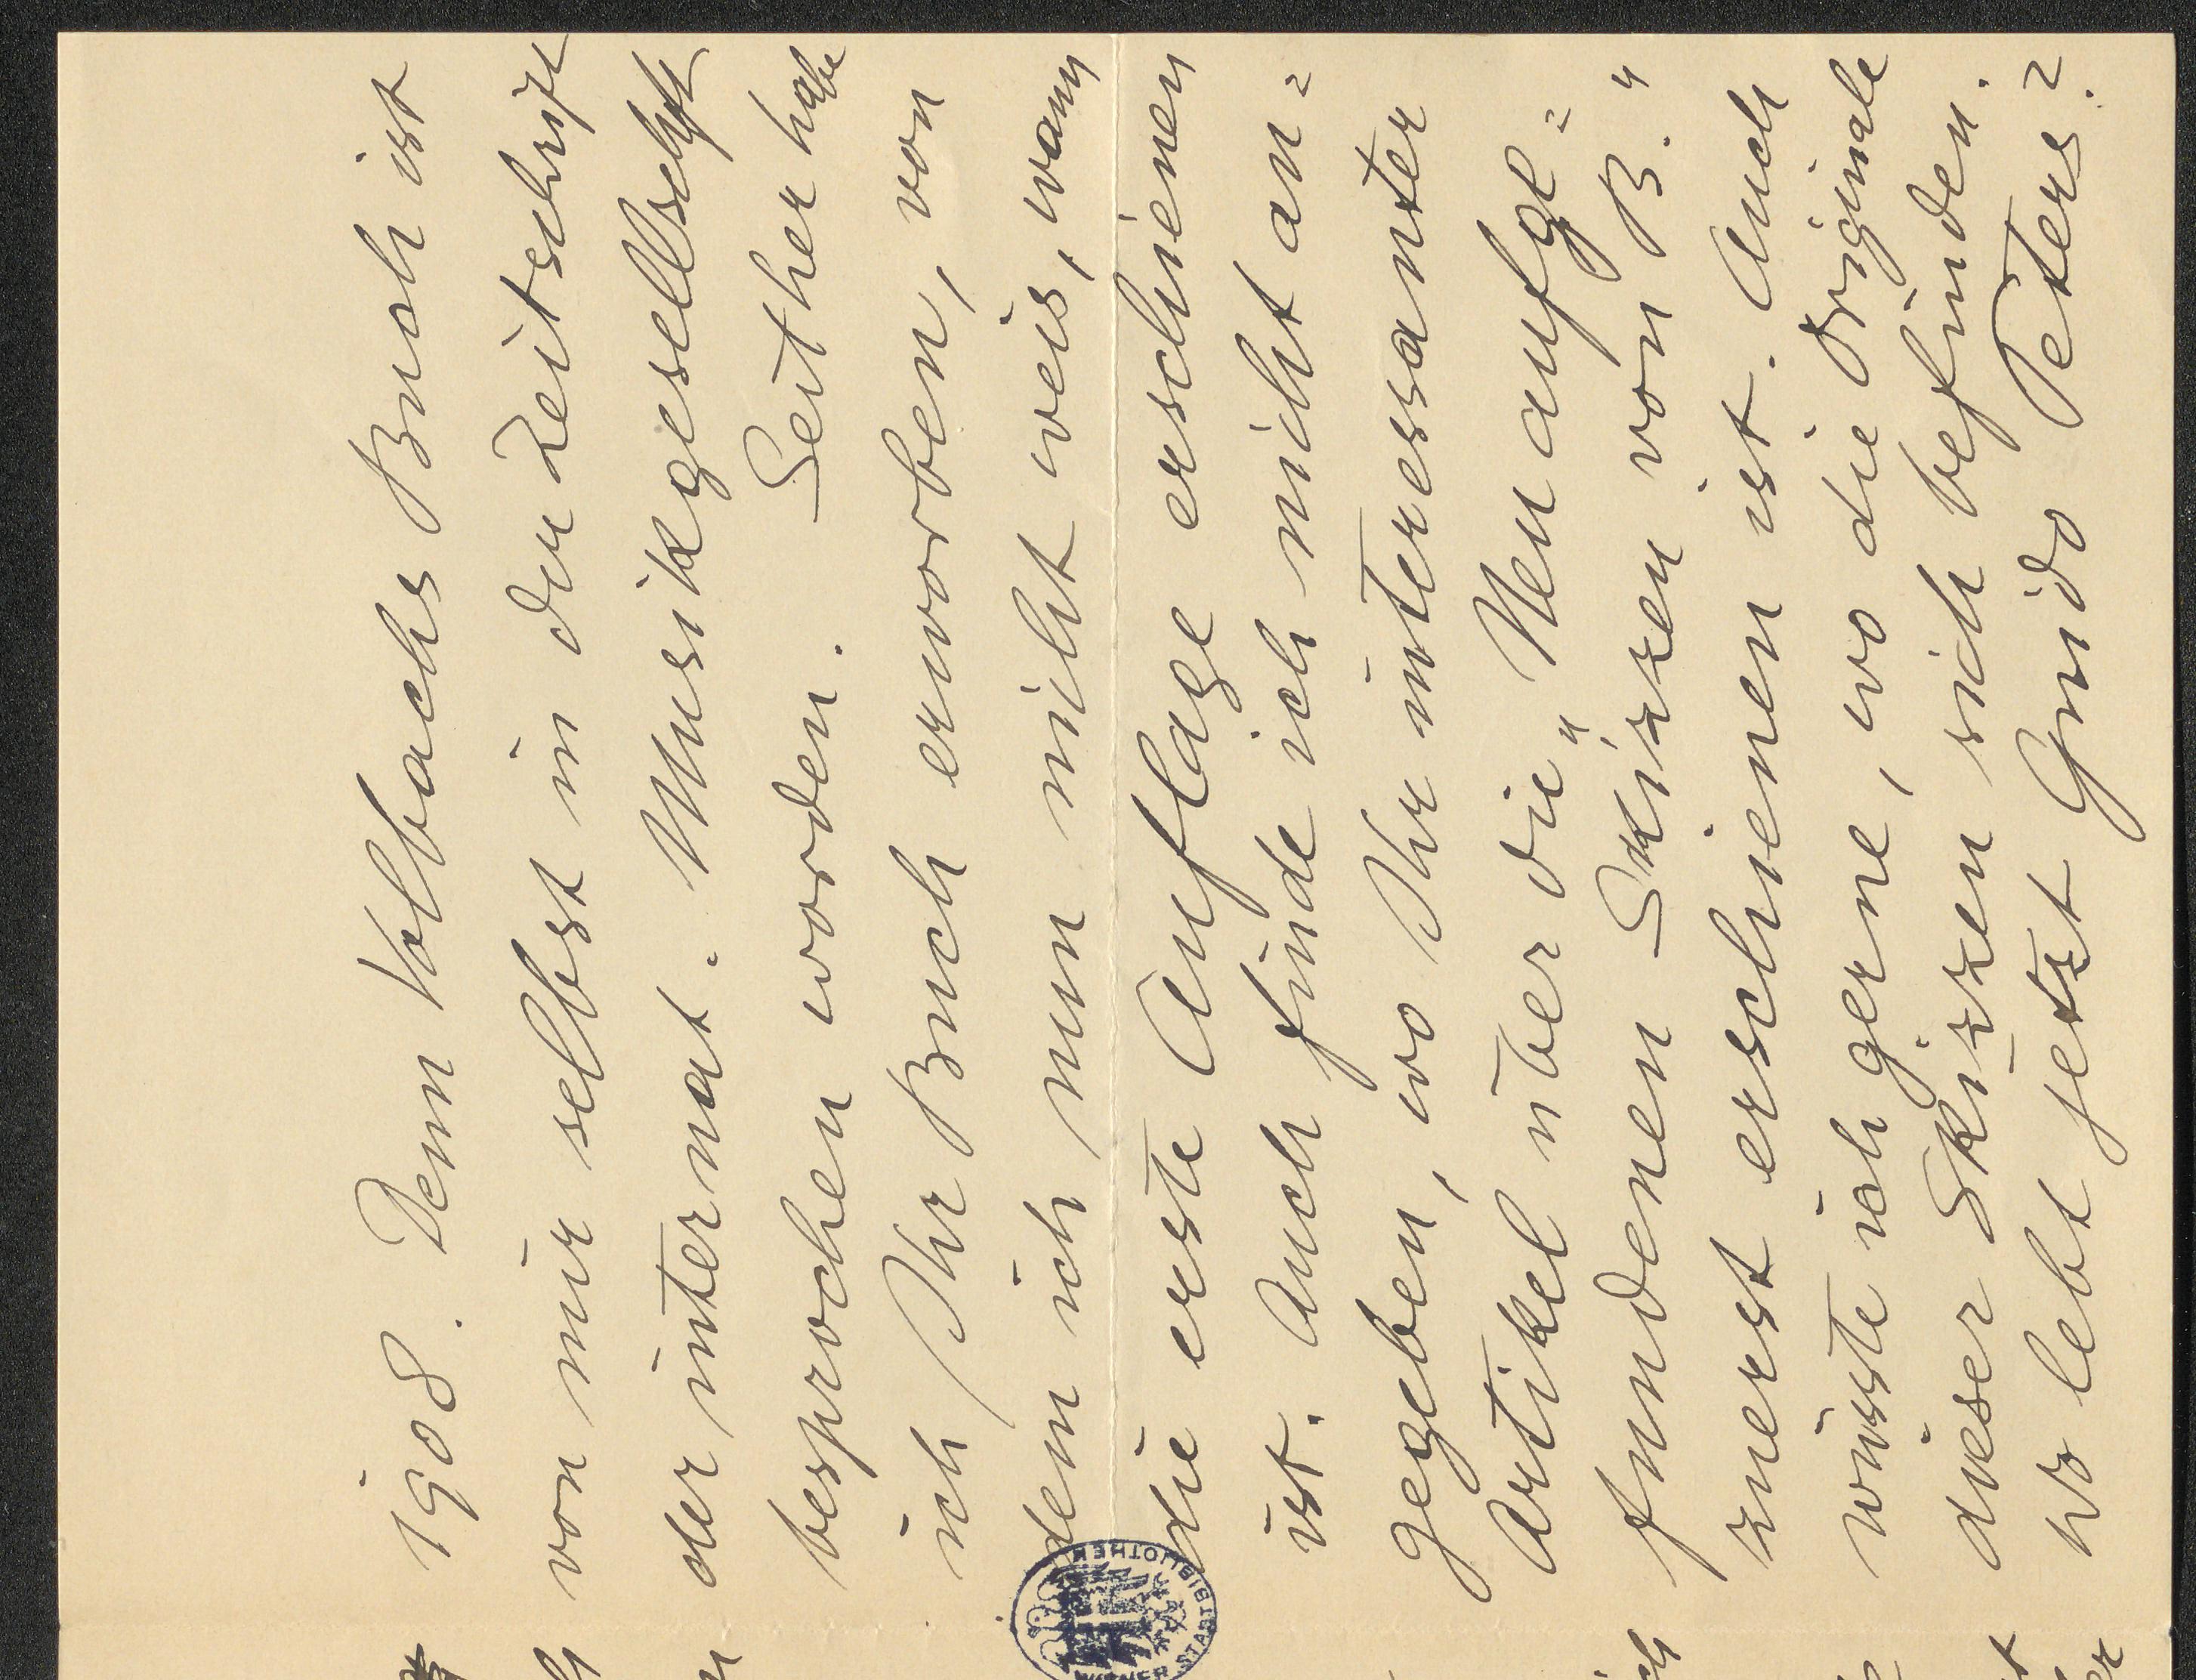 1908. Denn Volbachs Buch ist
von mir selbst in der Zeitschrift
der internat. Musikgesellschft
besprochen worden. Seither habe
ich Ihr Buch erworben, von
dem ich nun nicht weis, wann
die erste Auflage erschienen
ist. Auch finde ich nicht an=
gegeben, wo Ihr interessanter
Artikel über die „Neu aufge=
fundenen Skizzen von B."
zuerst erschienen ist. Auch
wüsste ich gerne, wo die Originale
dieser Skizzen sich befinden.
Wo lebt jetzt Guido Peters?
WIENER STADTBIBLIOTHEK